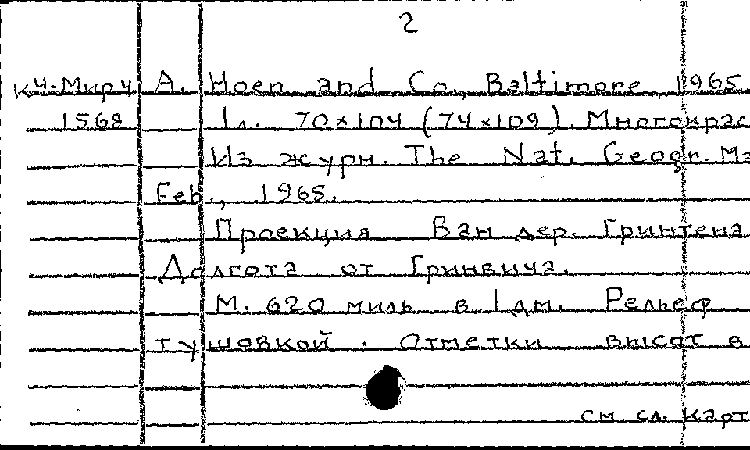 2
КЧ-Мирч A. Hoen and Co, Baltimore, 1965
1568 1 л. 70×104 (74×109). Многокрас
Из журн. The Nat. Geogr. Ma
Feb., 1965.
Проекция Ван дер. Гринтена
Долгота от Гринвича.
М. 620 миль в 1 дм. Рельеф
тушевкой. Отметки высот в
см. сл. карт